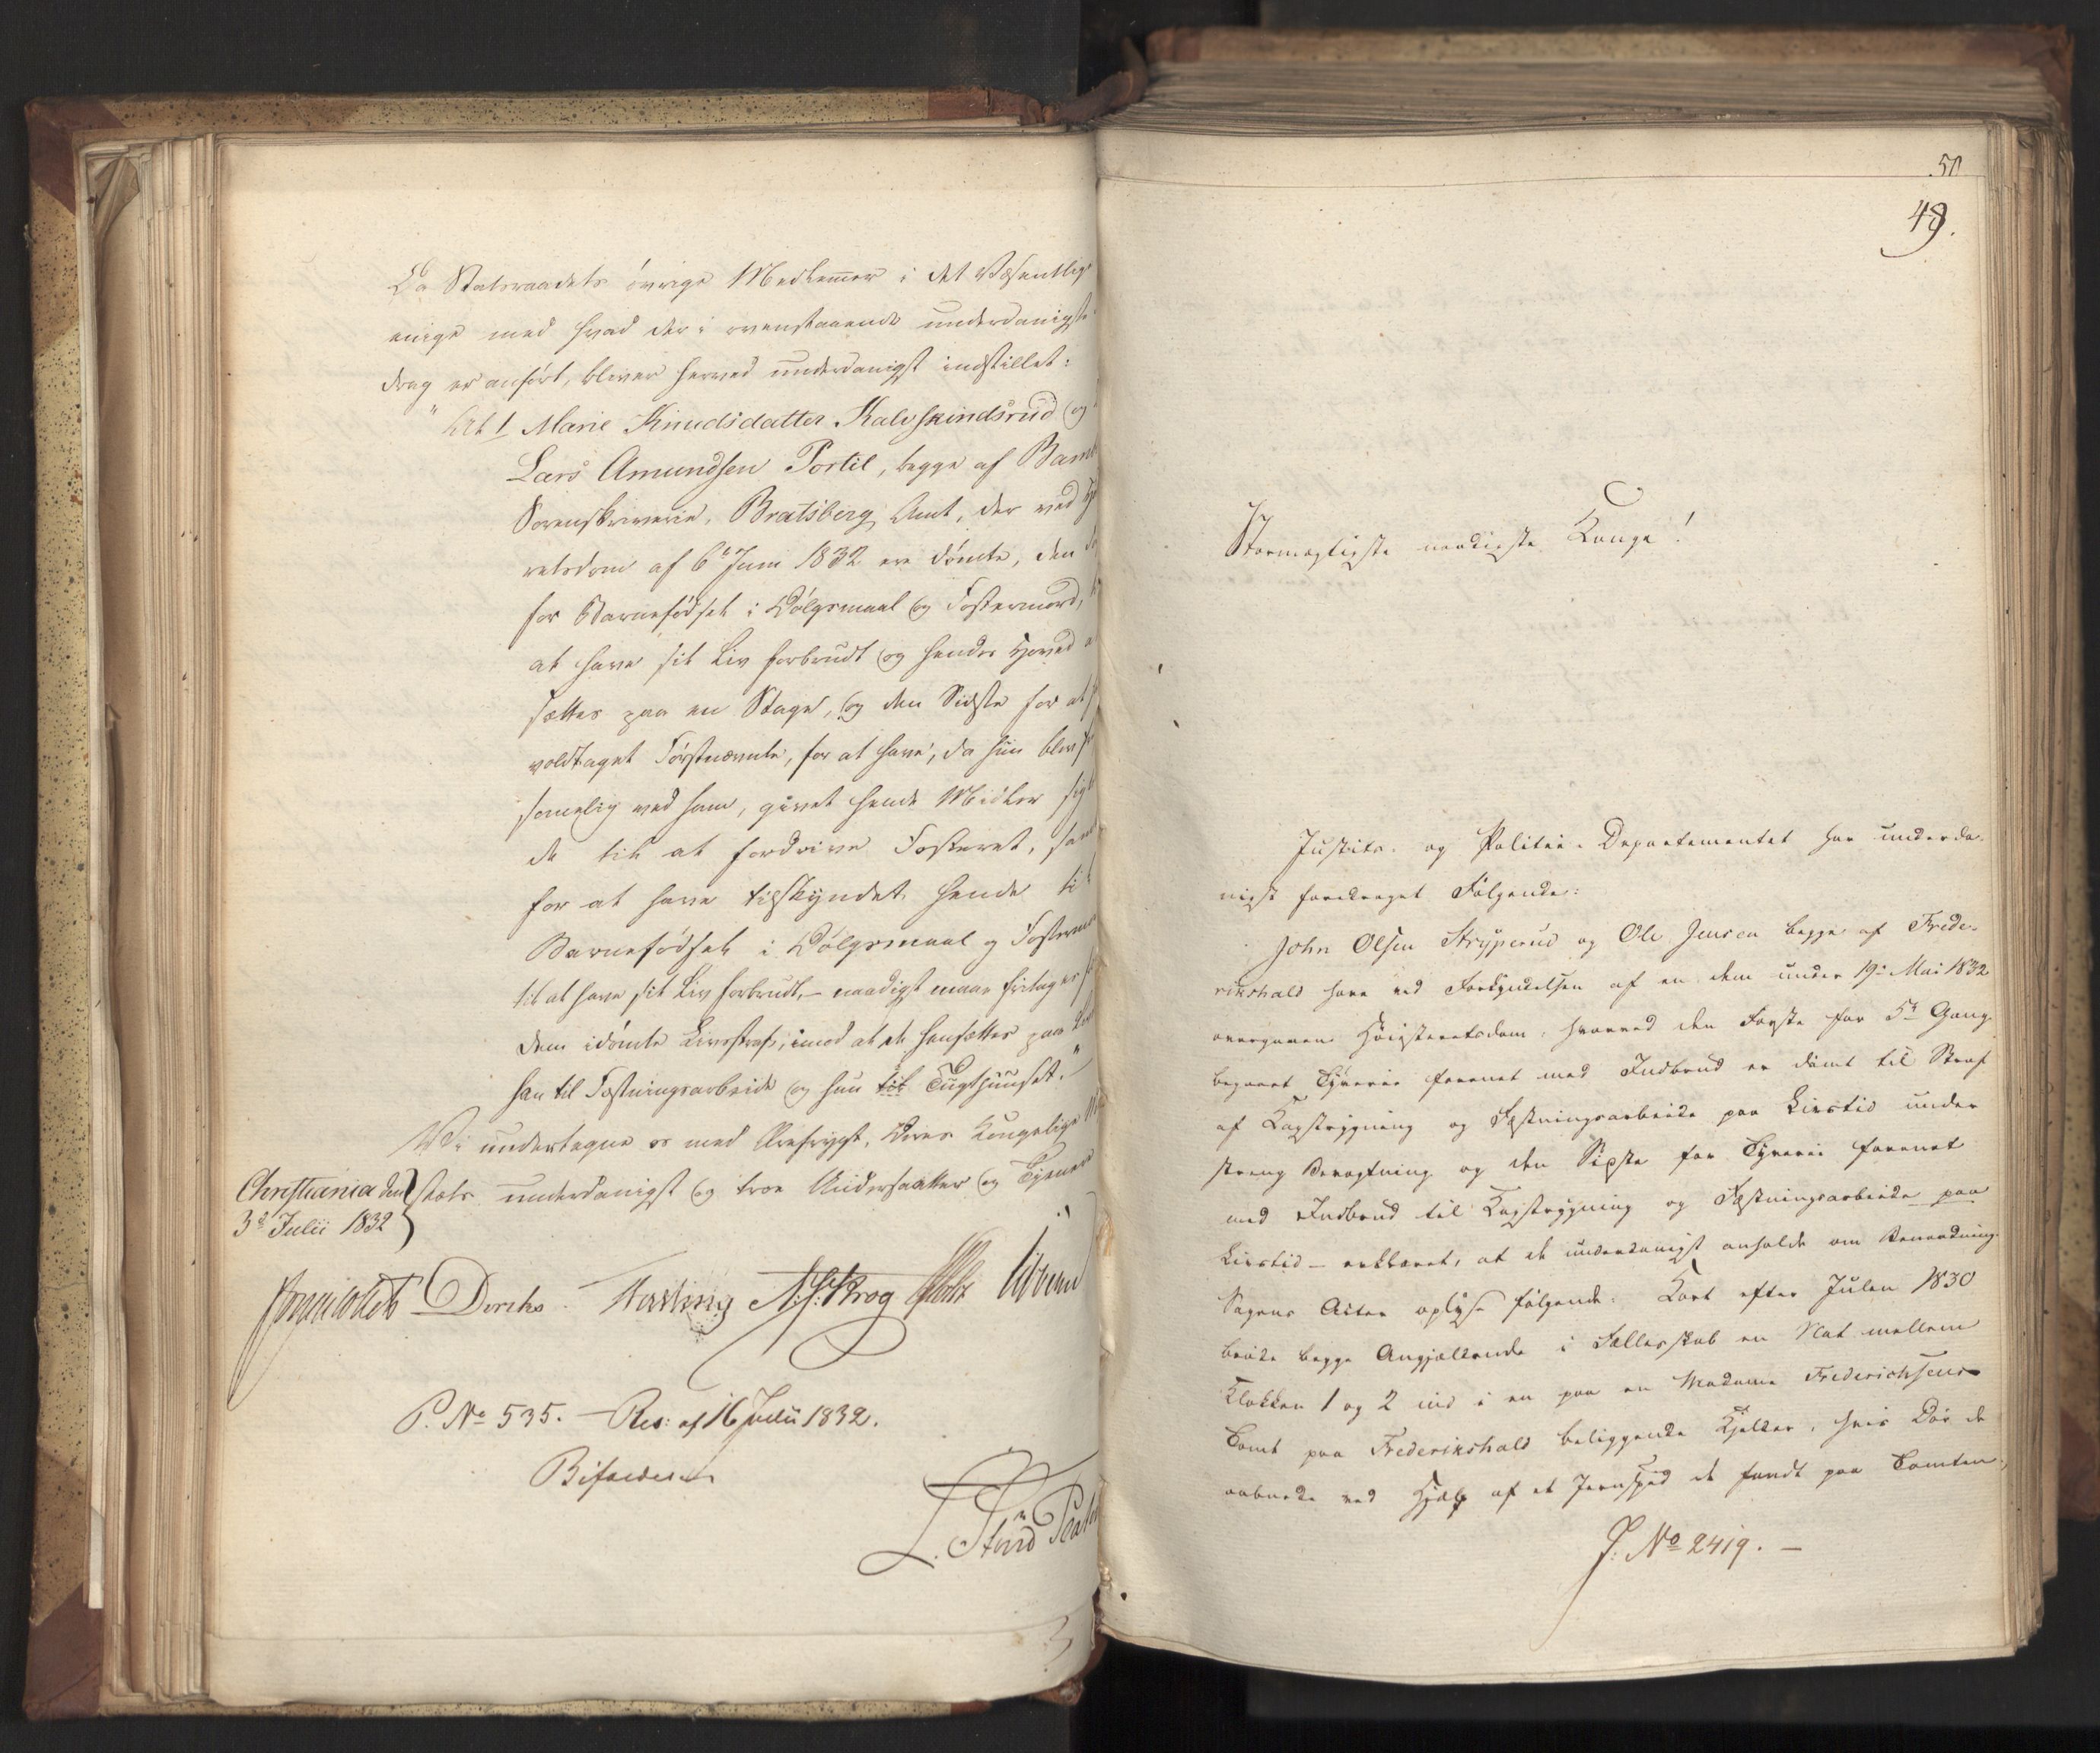 Da Statsraadets övrige Medlemmer i det Væsentlige
enige med hvad der i ovenstaaende underdanigste
drag er anfört, bliver herved underdanigst indstillet:
"At Marie Knudsdatter Kalvskindsrud og
Lars Amundsen Portil, begge af Bam
Sorenskriverie, Bratsberg Amt, der ved
retsdom af 6te Juni 1832 ere dömte, den
for Barnefödsel i Dölgsmaal og Fostermord,
at have sit Liv forbrudt og hendes Hoved
sættes paa en Stage, og den Sidste for at
voldtaget Förstnævnte, for at have, da hun blev
svanger ved ham, givet hende Midler
de til at fordrive Fosteret, samt
for at have tilskyndet hende til
Barnefödsel i Dölgsmaal og Fostermord
til at have sit Liv forbrudt, – naadigst maae fritages for
dem idömte Livsstraf, imod at de hensættes paa
han til Fæstningsarbeide og hun til Tugthuuset."
Vi undertegne os med Ærefrygt, Deres Kongelige
Christiania den
stæts underdanigst og troe Undersaatter og Tjenere
3d Julii 1832
Diriks N. J. Krog
P. No 535. – Res: af 16 Julii 1832.
Bifaldes
50
49.
Stormægtigste naadigste Konge!
Justits- og Politie-Departementet har underda-
nigst foredraget Fölgende:
John Olsen Strÿperud og Ole Jensen begge af Frede-
rikshald have ved Forkyndelsen af en dem under 19de Mai 1832
overgaaen Höiesteretsdom, hvorved den Förste for 5te Gang
begaaet Tÿverie forenet med Indbrud er dömt til Straf
af Kagstrygning og Fæstningsarbeide paa Livstid under
streng Bevogtning og den Sidste for Tÿverie forenet
med Indbrud til Kagstrygning og Fæstningsarbeide paa
Livstid – erklæret, at de underdanigst anholde om Benaadning.
Sagens Acter oplÿse fölgende: Kort efter Julen 1830
bröde begge Angjældende i Fællesskab en Nat mellem
Klokken 1 og 2 ind i en paa en Madame Frederichsens
Tomt paa Frederikshald beliggende Kjelder, hvis Dör de
aabnede ved Hjælp af et Jernspid de fandt paa Tomten,
J. No 2419. –